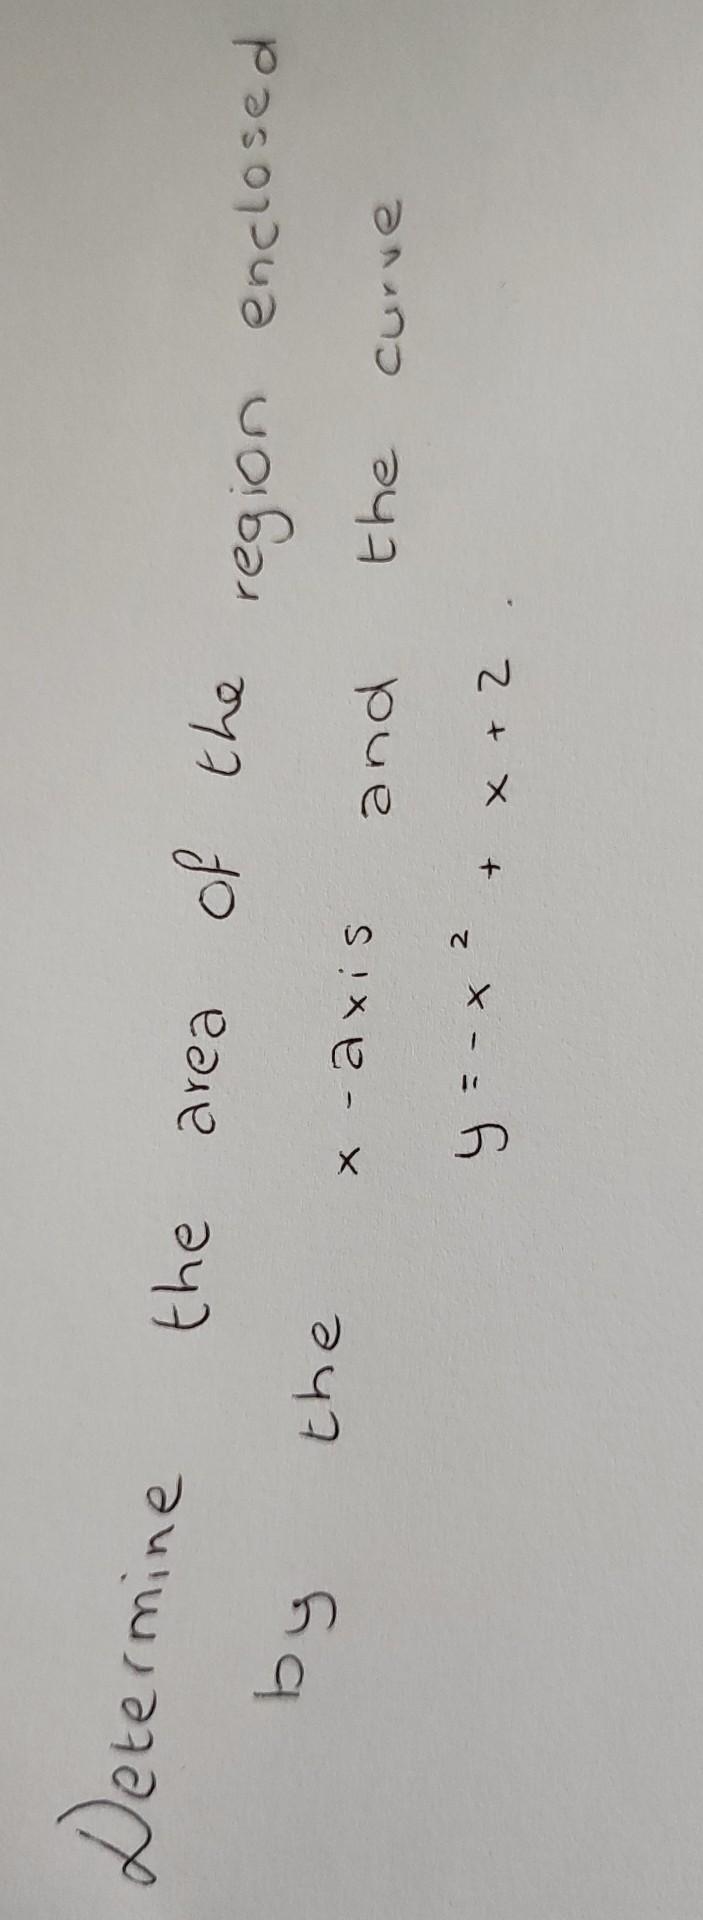 Determine the area of the region enclosed
by the x-axis and the curve
y = -x² + x + 2.